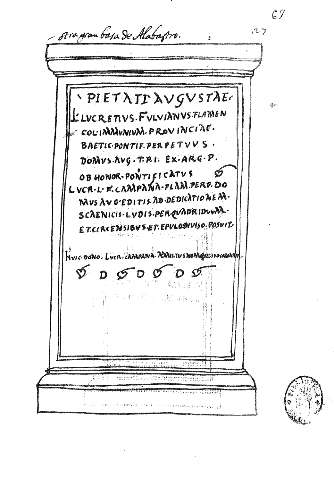 67
27
otra gran basa de Alabastro.
PIETATI AVGVSTAE
L LVCRETIVS. FVLVIANVS. FLAMEN
COL. IMMVNIVM. PROVINCIAE.
BAETIC. PONTIF. PERPETVVS
DOMVS. AVG. T. RI. EX. ARG. P.
OB HONOR. PONTIFICATVS
LVCR. L. F. CAMPANA. FLAM. PERP. DO
MVS AVG. EDITIS. AD. DEDICATIONEM.
SCAENICIS. LVDIS. PER QVADRIDVVM.
ET. CIRCENSIBVS ET. EPVLO DIVISO. POSVIT
HVIC. DONO. LVCR. CAMPANA.
D D D D